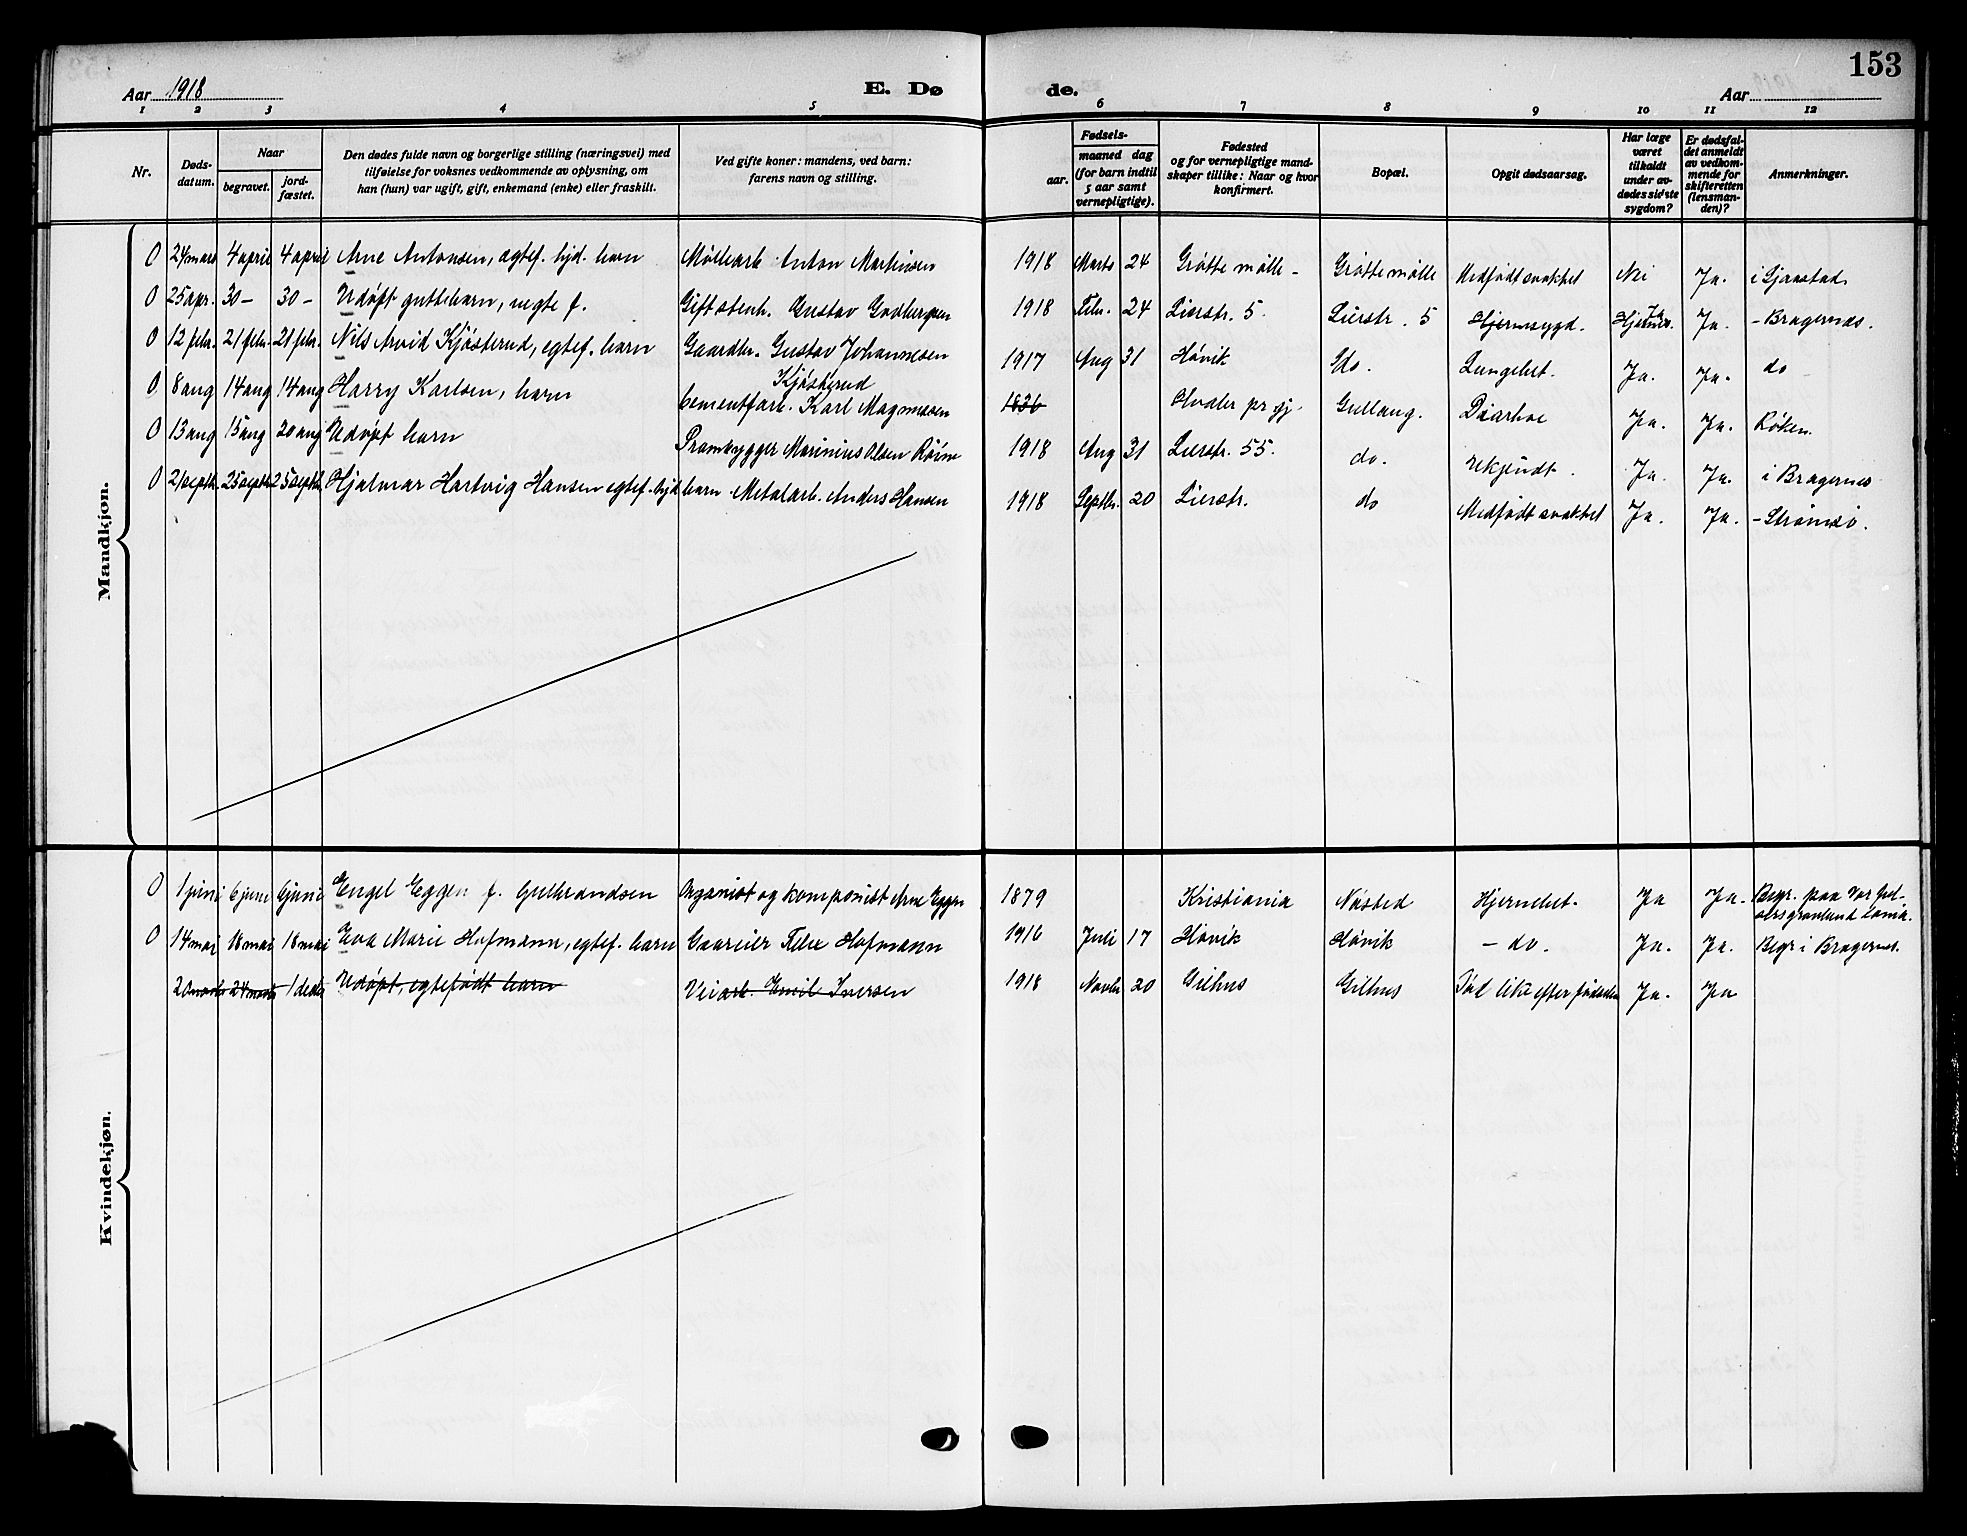 153
Aar 1918
E. Dø
de.
Aar
1 2 3 4 5 6 7 8 9 10 11 12
Nr.
Døds-
datum.
Naar
begravet.
jord-
fæstet.
Den dødes fulde navn og borgerlige stilling (næringsvei) med
tilføielse for voksnes vedkommende av oplysning, om
han (hun) var ugift, gift, enkemand (enke) eller fraskilt.
Ved gifte koner: mandens, ved barn:
farens navn og stilling.
Fødsels-
aar.
maaned dag
(for barn indtil
5 aar samt
vernepligtige).
Fødested
og for vernepligtige mand-
skaper tillike: Naar og hvor
konfirmert.
Bopæl.
Opgit dødsaarsag.
Har læge
været
tilkaldt
under av-
dødes sidste
sygdom?
Er dødsfal-
det anmeldt
av vedkom-
mende for
skifteretten
(lensman-
den)?
Anmerkninger.
Mandkjøn.
0 24 mars 4 april 4 april Arne Antonsen, egtef. hjd. barn Møllearb. Anton Martinsen 1918 Marts 24 Grøtte mølle - Grøtte mølle Medfødt svakhet Nei Ja. i Gjerstad
0 25 apr. 30 - 30 - Udøpt guttebarn, uegte f. Gift stenh. Gustav Godbergsen 1918 Febr. 24 Lierstr. 5. Lierstr. 5 Hjernesygd. Ja Ja. - Bragernæs.
0 12 febr. 21 febr. 21 febr. Nils Arvid Kjøsterud, egtef. barn Gaardbr. Gustav Johannesen
Kjøsterud 1917 Aug 31 Høvik do. Lungebet. Ja. Ja. do
0 8 aug 14 aug 14 aug Harry Karlsen, barn Cementfarb. Karl Magnussen 1836 Hvaler pr gj. Gullaug. Diarhoe Ja. Ja. Røken.
0 13 aug 15 aug 20 aug Udøpt barn Prambygger Marinius Olsen 1918 Aug 31 Lierstr. 55. do. ukjendt. Ja. Ja. i Bragernes
0 21 septb. 25 septb. 25 septb. Hjalmar Hartvig Hansen egtef. hjd. barn. Metalarb. Anders Hansen 1918 Septbr. 20 Lierstr. do Medfødt svakhet Ja. Ja. - Strømsø.
Kvindekjøn.
0 1 juni 6 juni 6 juni Engel Eggen f. Gulbrandsen Organist og komponist Arne Eggen 1879 Kristiania Nøsted Hjernebet. Ja Ja. Begr. paa Vor Frel-
sers gravlund
0 14 mai 18 mai 18 mai Eva Marie Hofmann, egtef. barn Hofmann 1916 Juli 17 Høvik Høvik - do. Ja. Ja. Begr i Bragernes.
20 novbr 24 novbr 1 decbr Udøpt, egtefødt barn Veiarb. Emil Iversen 1918 Novbr 20 Gilhus Gilhus Død like efter fødselen Ja. Ja